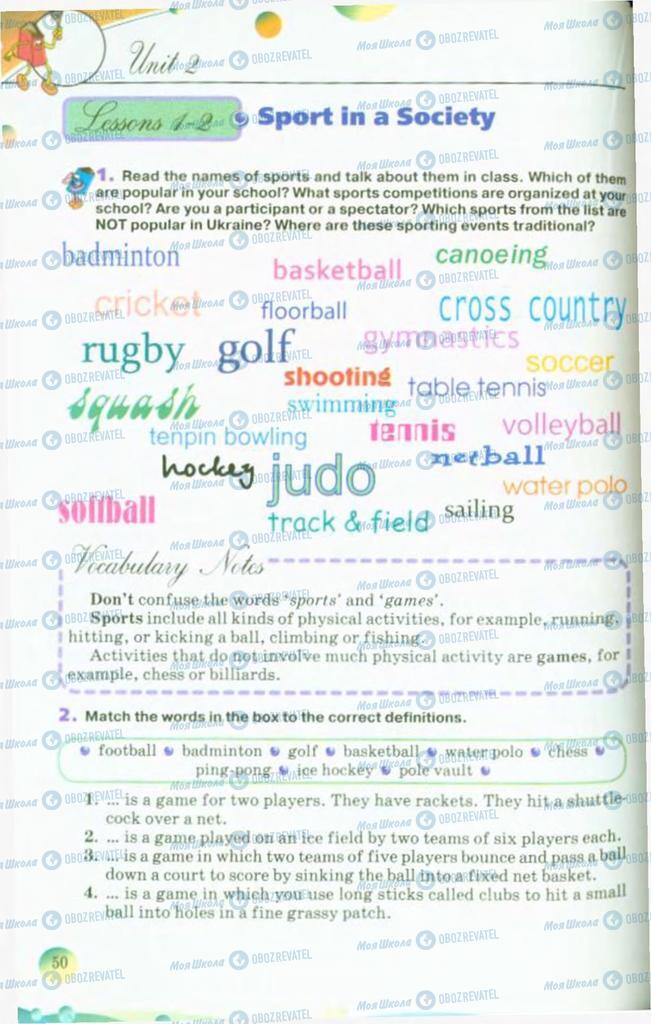 Unit 2
Lessons 1-2 Sport in a Society
1. Read the names of sports and talk about them in class. Which of them
are popular in your school? What sports competitions are organized at your
school? Are you a participant or a spectator? Which sports from the list are
NOT popular in Ukraine? Where are these sporting events traditional?
badminton basketball canoeing
cricket floorball cross country
rugby golf gymnastics
shooting soccer
squash swimming table tennis
tenpin bowling tennis volleyball
hockey judo netball
water polo
softball track & field sailing
Vocabulary Notes
Don't confuse the words 'sports' and 'games'.
Sports include all kinds of physical activities, for example, running,
hitting, or kicking a ball, climbing or fishing.
Activities that do not involve much physical activity are games, for
example, chess or billiards.
2. Match the words in the box to the correct definitions.
football badminton golf basketball water polo chess
ping-pong ice hockey pole vault
1. ... is a game for two players. They have rackets. They hit a shuttle-
cock over a net.
2. ... is a game played on an ice field by two teams of six players each.
3. ... is a game in which two teams of five players bounce and pass a ball
down a court to score by sinking the ball into a fixed net basket.
4. ... is a game in which you use long sticks called clubs to hit a small
ball into holes in a fine grassy patch.
50
Моя Школа OBOZREVATEL